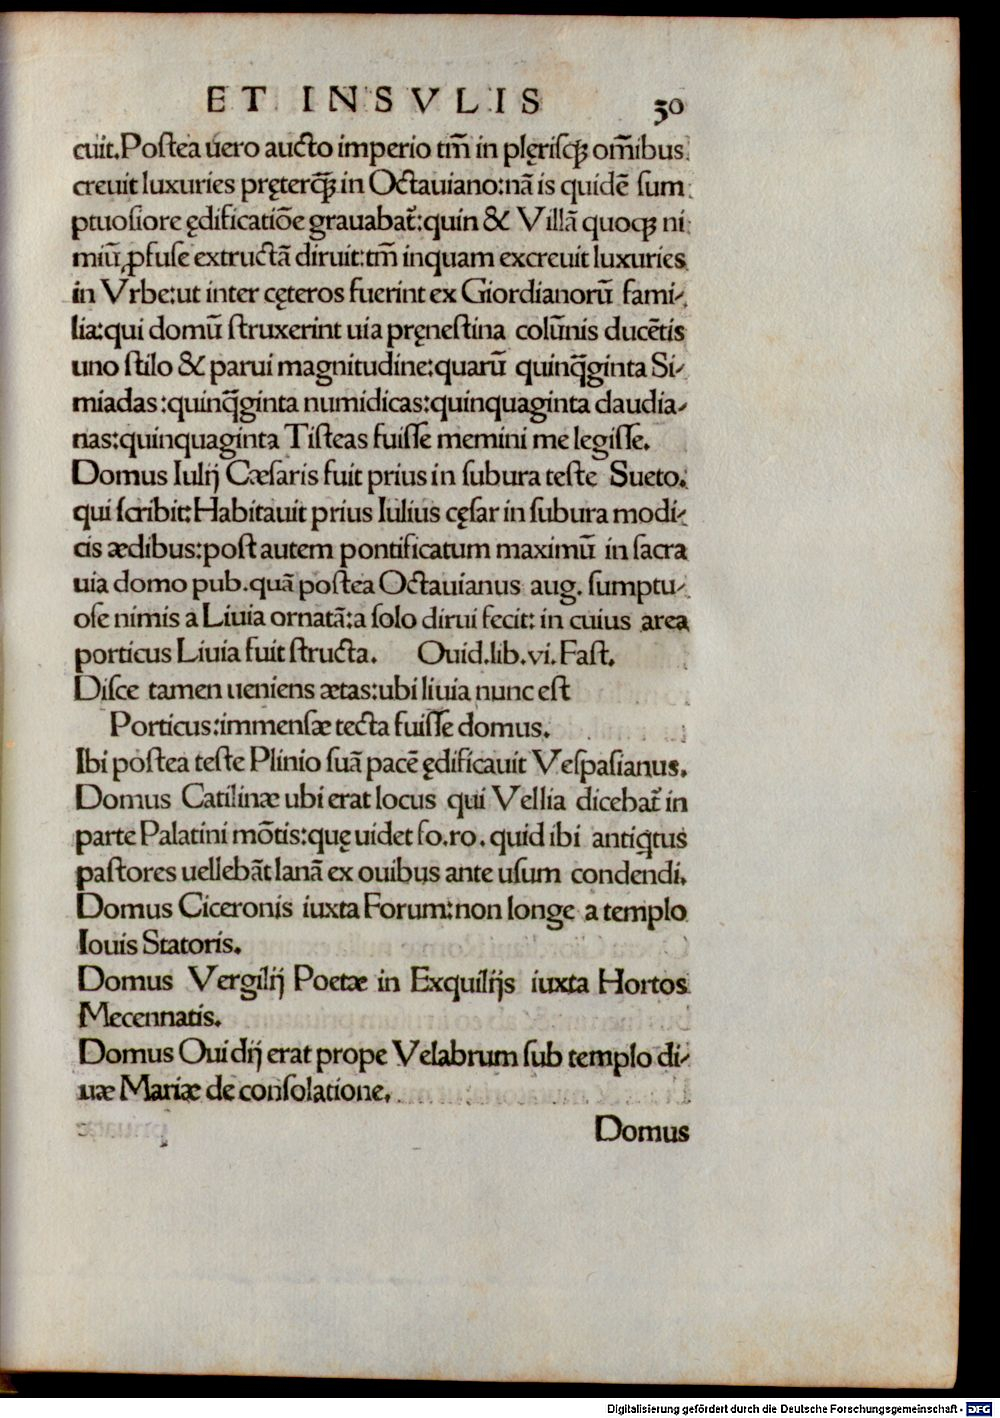 ET INSVLIS 30
cuit.Postea uero aucto imperio tm̃ in plęrisqꝫ om̃ibus
creuit luxuries pręterqꝫ̃ in Octauiano:nã is quidẽ sum
ptuosiore ędificatiõe grauabat̃:quin & Villã quoqꝫ ni
miũ ꝓfuse extructã diruit:tm̃ inquam excreuit luxuries
in Vrbe:ut inter cęteros fuerint ex Giordianorũ fami-
lia:qui domũ struxerint uia pręnestina colũnis ducẽtis
uno stilo & parui magnitudine:quarũ quinq̃ginta Si-
miadas:quinq̃ginta numidicas:quinquaginta daudia-
nas:quinquaginta Tisteas fuisse memini me legisse.
Domus Iulij Cæsaris fuit prius in subura teste Sueto.
qui scribit:Habitauit prius Iulius cęsar in subura modi-
cis ædibus:post autem pontificatum maximũ in sacra
uia domo pub.quã postea Octauianus aug. sumptu-
ose nimis a Liuia ornatã:a solo dirui fecit: in cuius area
porticus Liuia fuit structa. Ouid.lib.vi.Fast.
Disce tamen ueniens ætas:ubi liuia nunc est
Porticus:immensæ tecta fuisse domus.
Ibi postea teste Plinio suã pacẽ ędificauit Vespasianus.
Domus Catilinæ ubi erat locus qui Vellia dicebat̃ in
parte Palatini mõtis:quę uidet fo.ro.quid ibi antiq̃tus
pastores uellebãt lanã ex ouibus ante usum condendi.
Domus Ciceronis iuxta Forum:non longe a templo
Iouis Statoris.
Domus Vergilij Poetæ in Exquilijs iuxta Hortos
Mecennatis.
Domus Ouidij erat prope Velabrum sub templo di-
uæ Mariæ de consolatione.
Domus
Digitalisierung gefördert durch die Deutsche Forschungsgemeinschaft - DFG